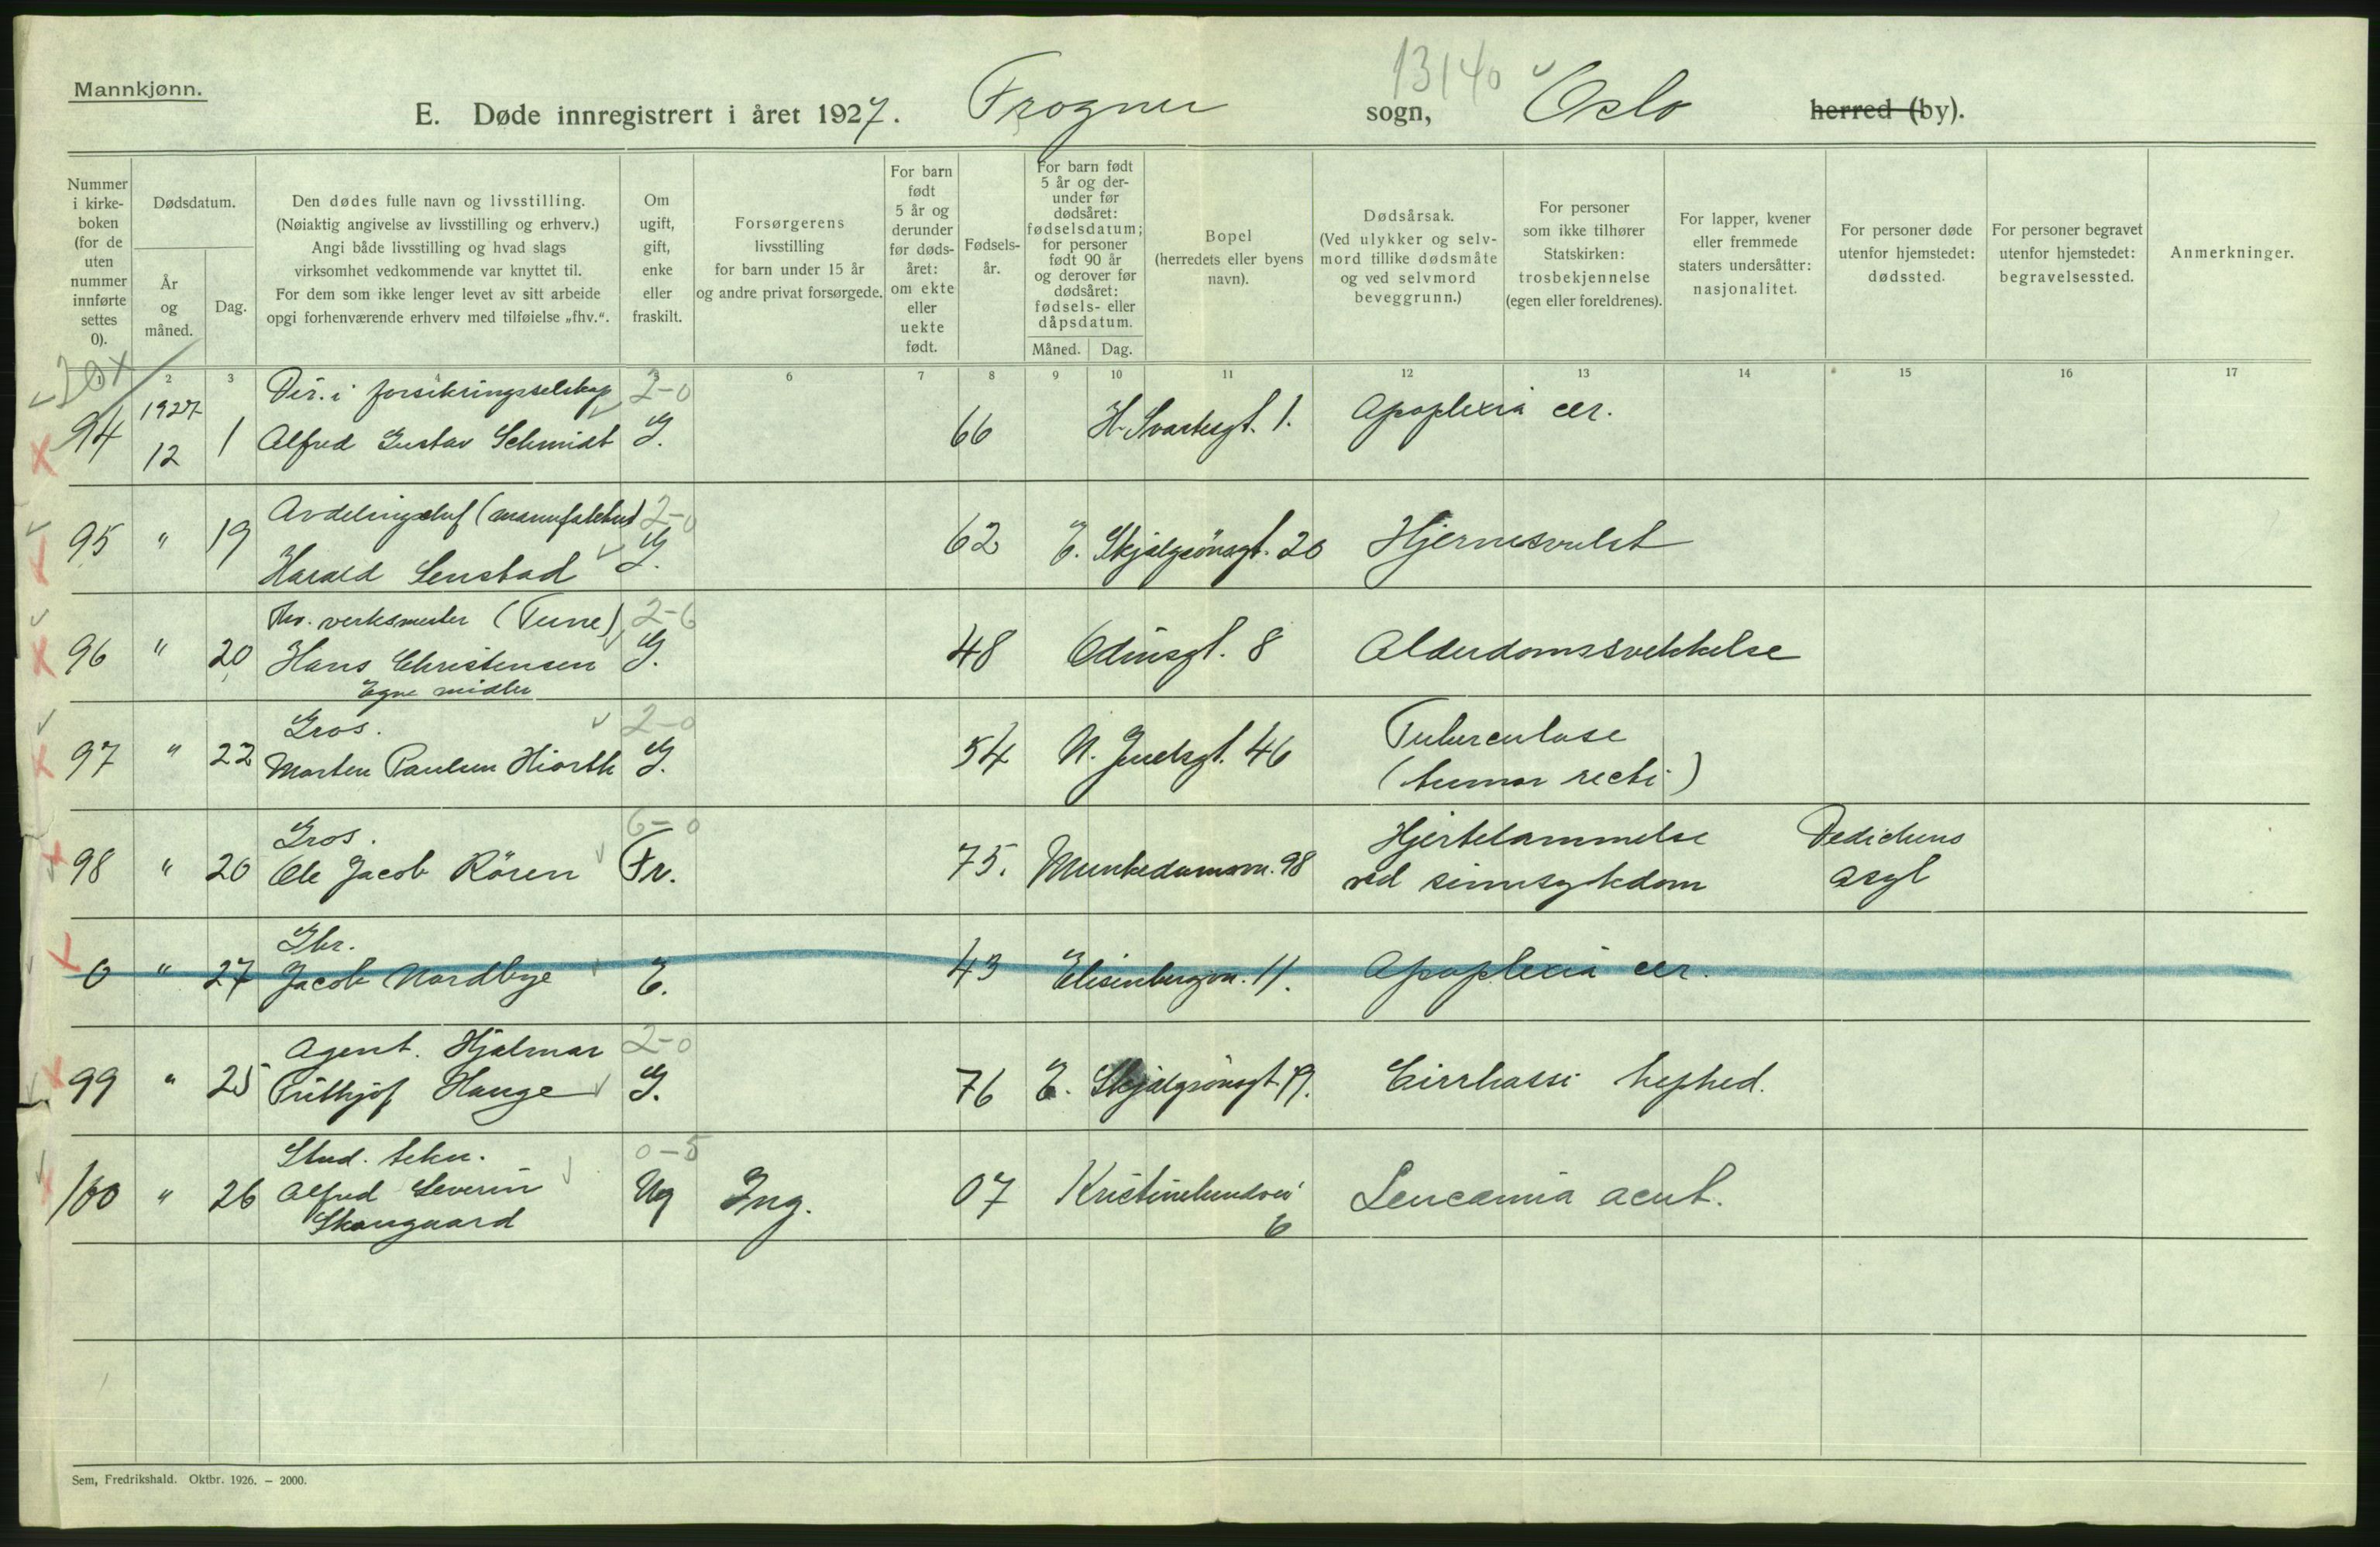 Mannkjønn.
13140
E. Døde innregistrert i året 1927. Frogner sogn, Oslo herred (by).
Nummer i kirke-boken (for de uten nummer innførte settes 0).
Dødsdatum.
År og måned.
Dag.
Den dødes fulle navn og livsstilling.
(Nøiaktig angivelse av livsstilling og erhverv.)
Angi både livsstilling og hvad slags
virksomhet vedkommende var knyttet til.
For dem som ikke lenger levet av sitt arbeide
opgi forhenværende erhverv med tilføielse „fhv.“.
Om ugift, gift, enke eller fraskilt.
Forsørgerens
livsstilling
for barn under 15 år
og andre privat forsørgede.
For barn født 5 år og derunder før døds-året: om ekte eller uekte født.
Fødsels-år.
For barn født 5 år og der-under før dødsåret: fødselsdatum; for personer født 90 år og derover før dødsåret: fødsels- eller dåpsdatum.
Måned. Dag.
Bopel
(herredets eller byens
navn).
Dødsårsak.
(Ved ulykker og selv-
mord tillike dødsmåte
og ved selvmord
beveggrunn.)
For personer
som ikke tilhører
Statskirken:
trosbekjennelse
(egen eller foreldrenes).
For lapper, kvener
eller fremmede
staters undersåtter:
nasjonalitet.
For personer døde
utenfor hjemstedet:
dødssted.
For personer begravet
utenfor hjemstedet:
begravelsessted.
Anmerkninger.
1 2 3 4 5 6 7 8 9 10 11 12 13 14 15 16 17
Dir. i forsikringsselskap 2-0
94 1927 12 1 Alfred Gustav Schmidt G. 66 H. Svartesgt. 1. Apoplexia cer.
Avdelingschef (manufaktur) 2-0
95 " 19 Harald Senstad G. 62 E. Skjalgsönsgt. 20 Hjernesvulst
Fhv. verksmester (Tune) 2-6
96 " 20 Hans Christensen G. 48 Odinsgt. 8 Alderdomssvekkelse
Egne midler
Gros. 2-0
97 " 22 Morten Paulsen Hiorth G. 54 N. Juelsgt. 46 Tuberculose
(tumor recti)
Gros. 6-0
98 " 20 Ole Jacob Rören Fr. 75. Munkedamsvn. 98 Hjertelammelse
ved sinnsykdom
Dedichens
asyl
Gbr.
0 " 27 Jacob Nordbye E. 43 Elisenbergvn. 11. Apoplexia cer.
Agent. Hjalmar 2-0
99 " 25 Frithjof Hauge G. 76 E. Skjalgsönsgt 19. Cirrhosis hephed.
Stud. tekn. 0-5
100 " 26 Alfred Severin
Skougaard Ug Ing. 07 Kristinelundvei
6 Leucæmia acut.
Sem, Fredrikshald. Oktbr. 1926. – 2000.